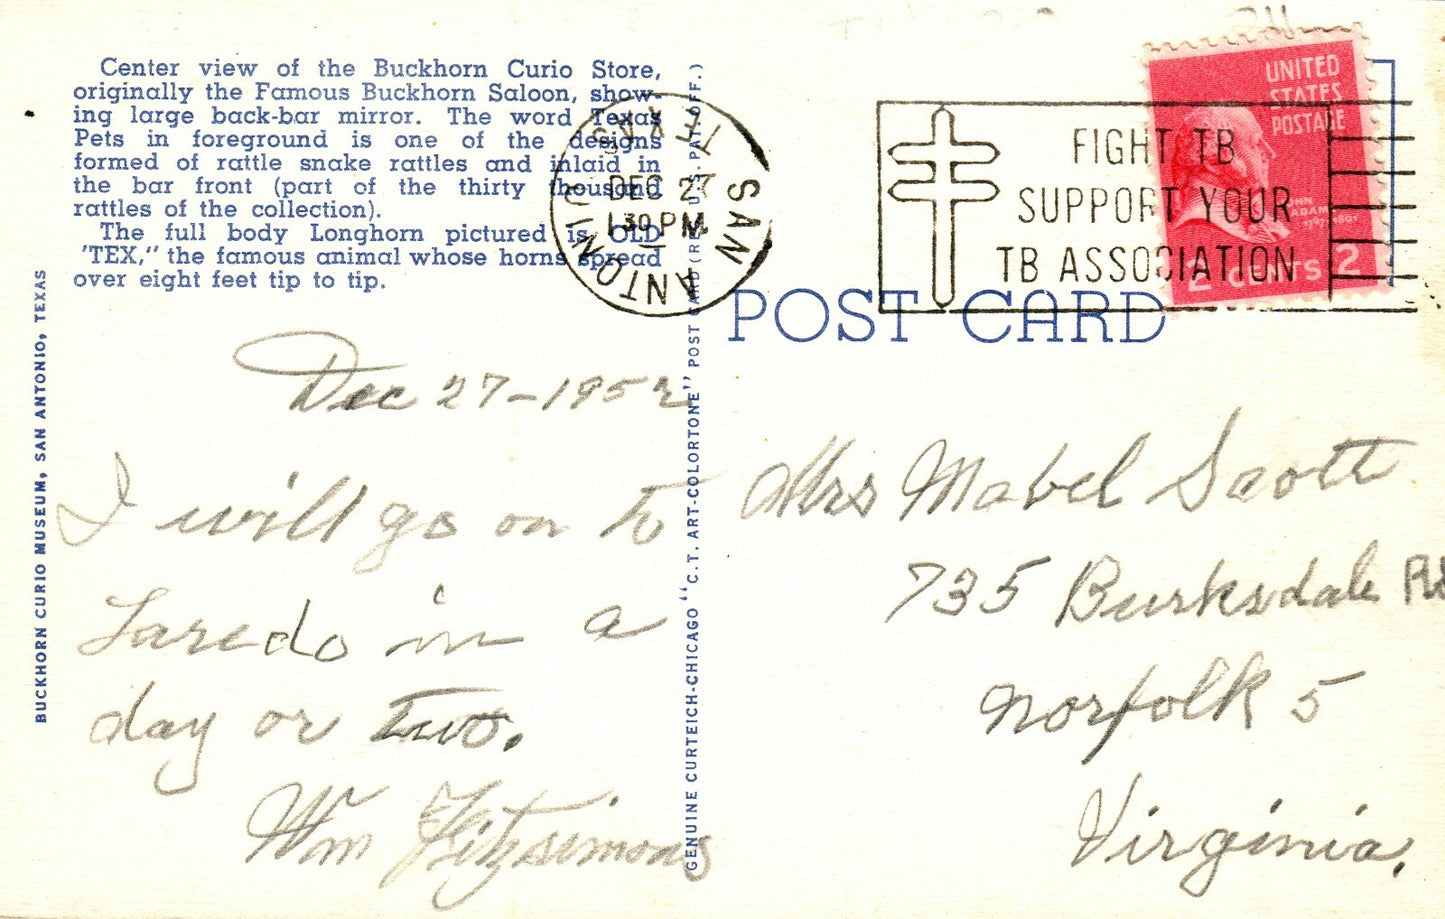 Center view of the Buckhorn Curio Store,
originally the Famous Buckhorn Saloon, show-
ing large back-bar mirror. The word Texas
Pets in foreground is one of the designs
formed of rattle snake rattles and inlaid in
the bar front (part of the thirty thousand
rattles of the collection).
The full body Longhorn pictured is OLD
'TEX," the famous animal whose horns spread
over eight feet tip to tip.
BUCKHORN CURIO MUSEUM, SAN ANTONIO, TEXAS
SAN ANTONIO TEXAS
DEC 27
1 30 PM
FIGHT TB
SUPPORT YOUR
TB ASSOCIATION
UNITED
STATES
POSTAGE
JOHN
ADAMS
2 CENTS 2
POST CARD
GENUINE CURTEICH-CHICAGO "C. T. ART-COLORTONE" POST CARD (REG. U.S. PAT. OFF.)
Dec 27-1952
I will go on to
Laredo in a
day or two.
Wm Fitzsimons
Mrs Mabel Scott
735 Burksdale Rd
Norfolk 5
Virginia.